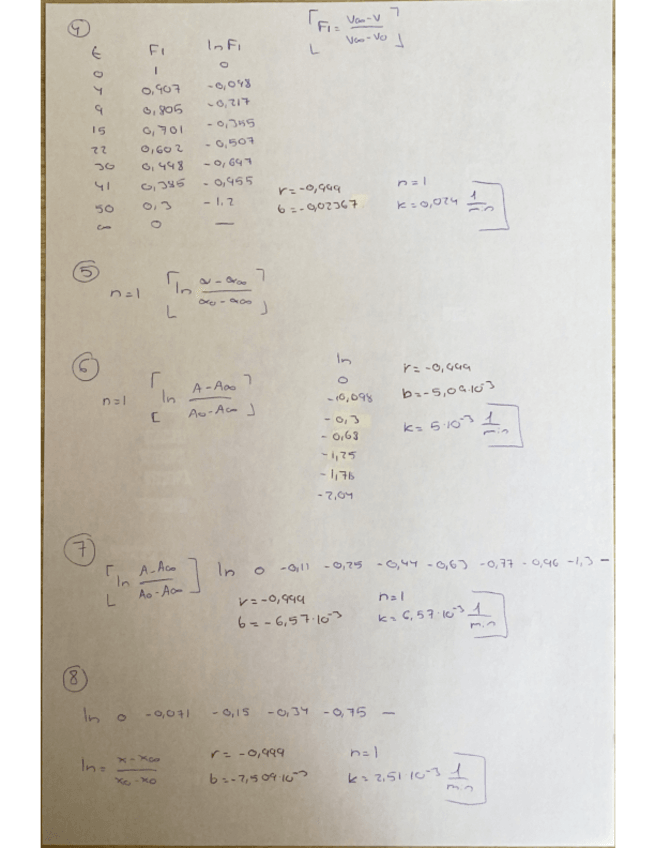 4)
[F1 = V∞-V / V∞-V0]
t F1 ln F1
0 1 0
4 0,907 -0,098
9 0,805 -0,217
15 0,701 -0,355
22 0,602 -0,507
30 0,498 -0,697
41 0,385 -0,955
50 0,3 -1,2
∞ 0 —
r=-0,999 n=1
b=-0,02367 k=0,024 1/min
5)
n=1 [ln α-α∞ / α0-α∞]
6)
n=1 [ln A-A∞ / A0-A∞]
ln
0
-0,098
-0,3
-0,68
-1,25
-1,76
-2,04
r=-0,999
b=-5,09·10⁻³
k=5·10⁻³ 1/min
7)
[ln A-A∞ / A0-A∞] ln 0 -0,11 -0,25 -0,44 -0,63 -0,77 -0,96 -1,3 —
r=-0,999 n=1
b=-6,57·10⁻³ k=6,57·10⁻³ 1/min
8)
ln 0 -0,071 -0,15 -0,34 -0,75 —
ln = x-x∞ / x0-x0 r=-0,999 n=1
b=-2,509 10⁻³ k=2,51 10⁻³ 1/min